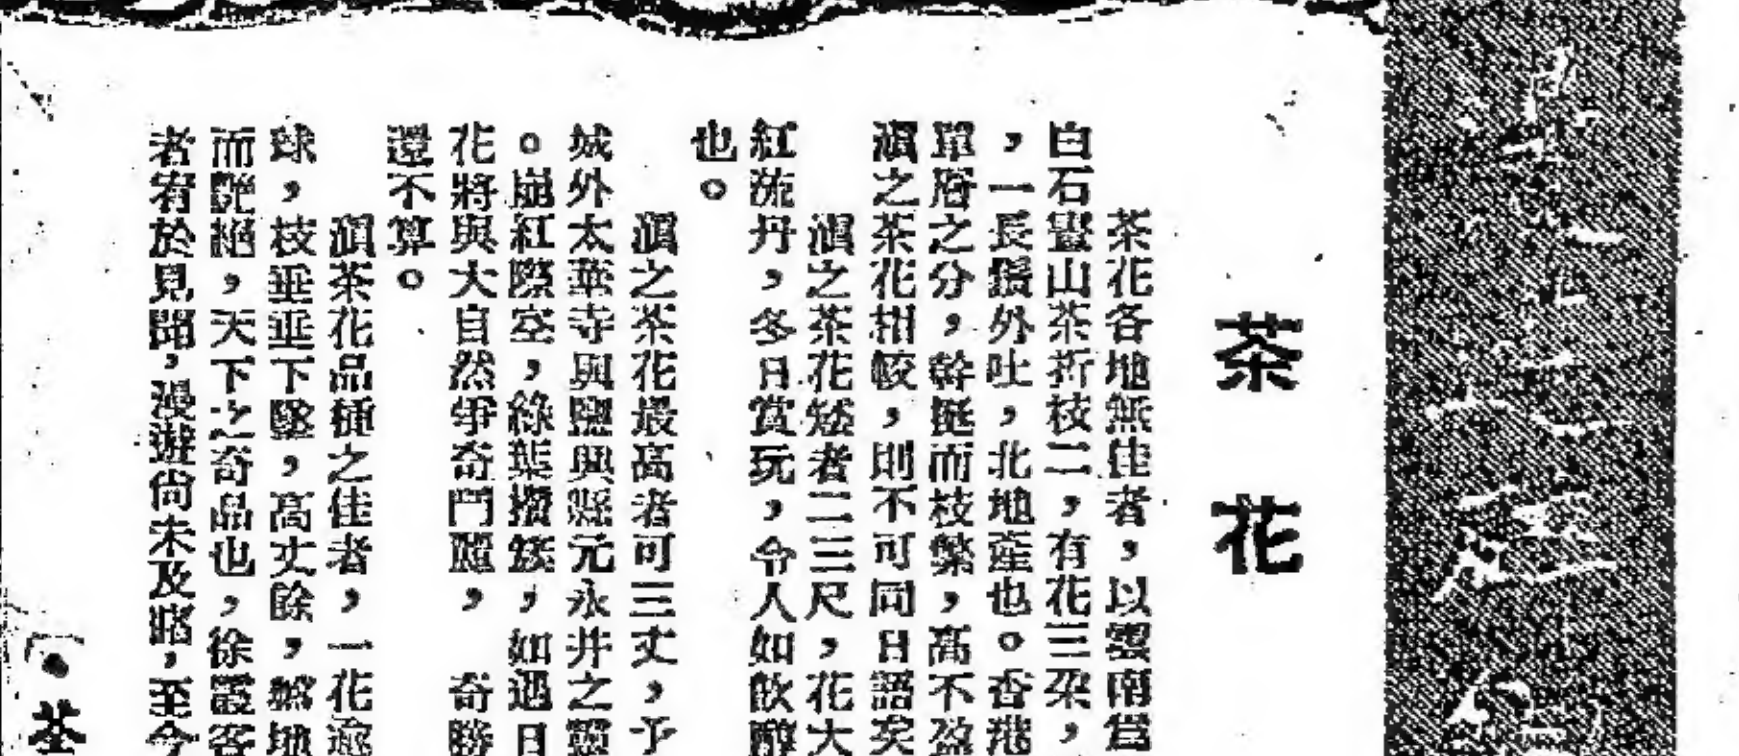 茶花
茶花各地無佳者，以雲南為
白石靈山茶折枝二，有花三朶，
，一長鬚外吐，北地產也。香港
單層之分，幹挺而枝繁，高不盈
滇之茶花相較，則不可同日語矣
滇之茶花矮者二三尺，花大
紅流丹，冬日賞玩，令人如飲醇
也。
滇之茶花最高者可三丈，予
城外太華寺與鹽興縣元永井之靈
。崩紅際空，綠葉攢簇，如遇日
花將與大自然爭奇鬥麗，奇勝
還不算。
滇茶花品種之佳者，一花逾
球，枝垂垂下墜，高丈餘，地
而艷絕，天下之奇品也，徐霞客
者宥於見聞，漫遊尙未及，至今
茶